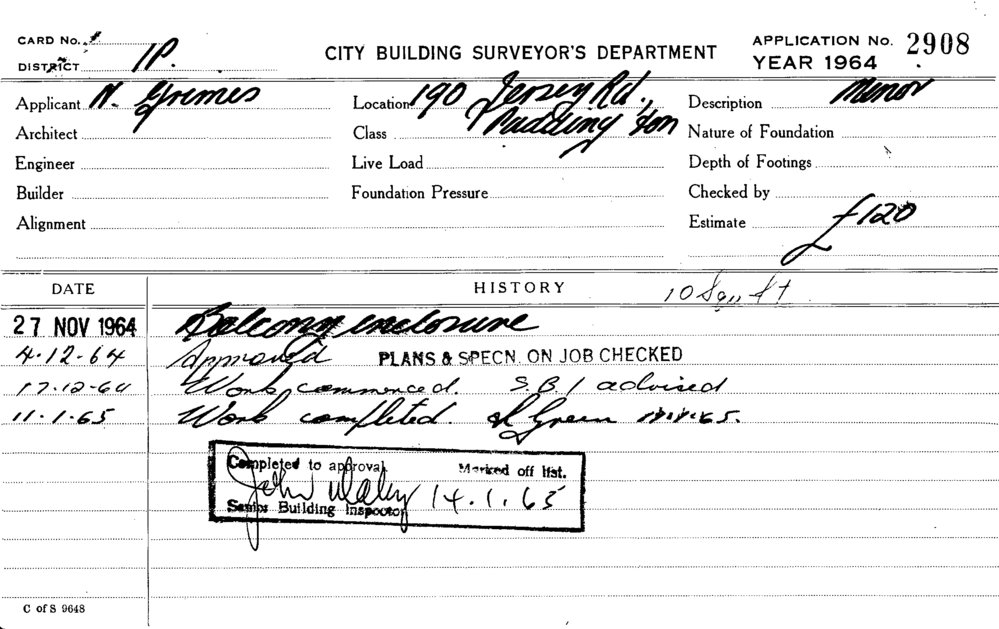 CARD No. CITY BUILDING SURVEYOR'S DEPARTMENT APPLICATION No. 2908
DISTRICT 1P. YEAR 1964
Applicant N. Grimes Location 190 Jersey Rd., Description Minor
Architect Class Paddington Nature of Foundation
Engineer Live Load Depth of Footings
Builder Foundation Pressure Checked by
Alignment Estimate £120
DATE HISTORY 10 Squ ft
27 NOV 1964 Balcony enclosure
4·12·64 Approved PLANS & SPECN. ON JOB CHECKED
17·12·64 Work commenced. S.B.I advised
11·1·65 Work completed. Green 11·1·65.
Completed to approval Marked off list.
John 14.1.65
Senior Building Inspector
C of S 9648